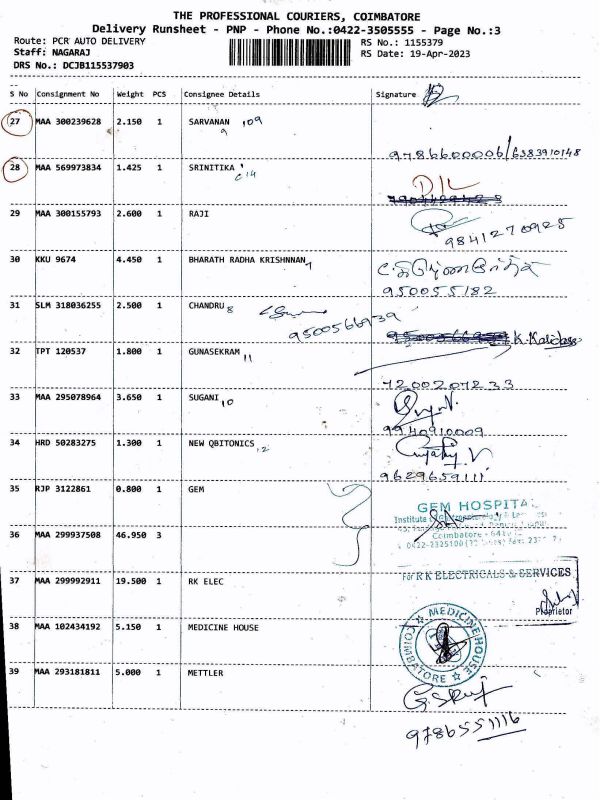 THE PROFESSIONAL COURIERS, COIMBATORE
Delivery Runsheet - PNP - Phone No.:0422-3505555 - Page No.:3
Route: PCR AUTO DELIVERY RS No.: 1155379
Staff: NAGARAJ RS Date: 19-Apr-2023
DRS No.: DCJB115537903
S No Consignment No Weight PCS Consignee Details Signature
27 MAA 300239628 2.150 1 SARVANAN 109
9
9786600006/6383910148
28 MAA 569973834 1.425 1 SRINITIKA
C14
D/L
29 MAA 300155793 2.600 1 RAJI
9841270925
30 KKU 9674 4.450 1 BHARATH RADHA KRISHNNAN 7
950055182
31 SLM 318036255 2.500 1 CHANDRU 8
9500566939
K. Kalidass
32 TPT 120537 1.800 1 GUNASEKRAM 11
7200207233
33 MAA 295078964 3.650 1 SUGANI 10
9940910009
34 HRD 50283275 1.300 1 NEW QBITONICS 12
9629659111
35 RJP 3122861 0.800 1 GEM
GEM HOSPITAL
Institute
Coimbatore
0422-2325100
36 MAA 299937508 46.950 3
37 MAA 299992911 19.500 1 RK ELEC
For R K ELECTRICALS & SERVICES
Proprietor
38 MAA 102434192 5.150 1 MEDICINE HOUSE
MEDICINE HOUSE
COIMBATORE
39 MAA 293181811 5.000 1 METTLER
9786551116